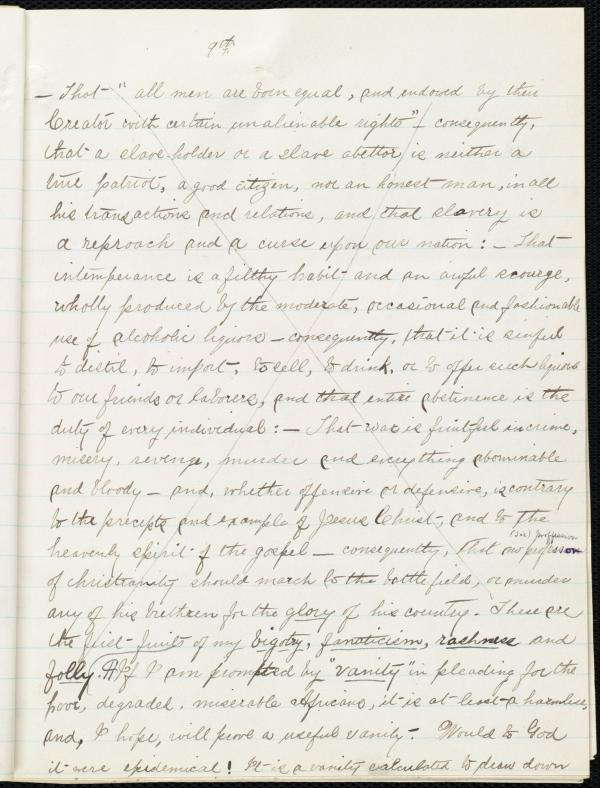 9th
— That " all men are born equal, and endowed by their
Creator with certain unalienable rights" — consequently,
that a slave-holder or a slave abettor is neither a
true patriot, a good citizen, nor an honest man, in all
his transactions and relations, and that slavery is
a reproach and a curse upon our nation: — That
intemperance is a filthy habit and an awful scourge,
wholly produced by the moderate, occasional and fashionable
use of alcoholic liquors — consequently, that it is sinful
to distil, to import, to sell, to drink, or to offer such liquors
to our friends or laborers, and that entire abstinence is the
duty of every individual: — That war is fruitful in crime,
misery, revenge, murder and everything abominable
and bloody — and, whether offensive or defensive, is contrary
to the precepts and example of Jesus Christ, and to the
(sic) profession
heavenly spirit of the gospel — consequently, that no professor
of christianity should march to the battlefield, or murder
any of his brethren for the glory of his country. These are
the first-fruits of my bigotry, fanaticism, rashness and
folly. If I am prompted by "vanity" in pleading for the
poor, degraded, miserable Africans, it is at least a harmless,
and, I hope, will prove a useful vanity. Would to God
it were epidemical! It is a vanity calculated to draw down